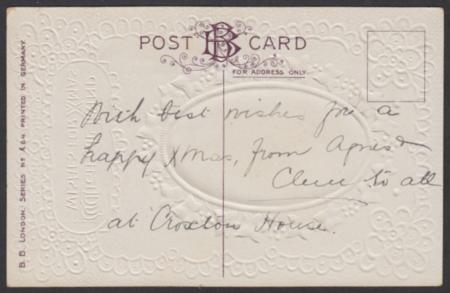 POST BB CARD
FOR ADDRESS ONLY.
With best wishes for a
happy Xmas, from Agnes &
to all
at Croxton House.
B. B. LONDON. SERIES No A64. PRINTED IN GERMANY